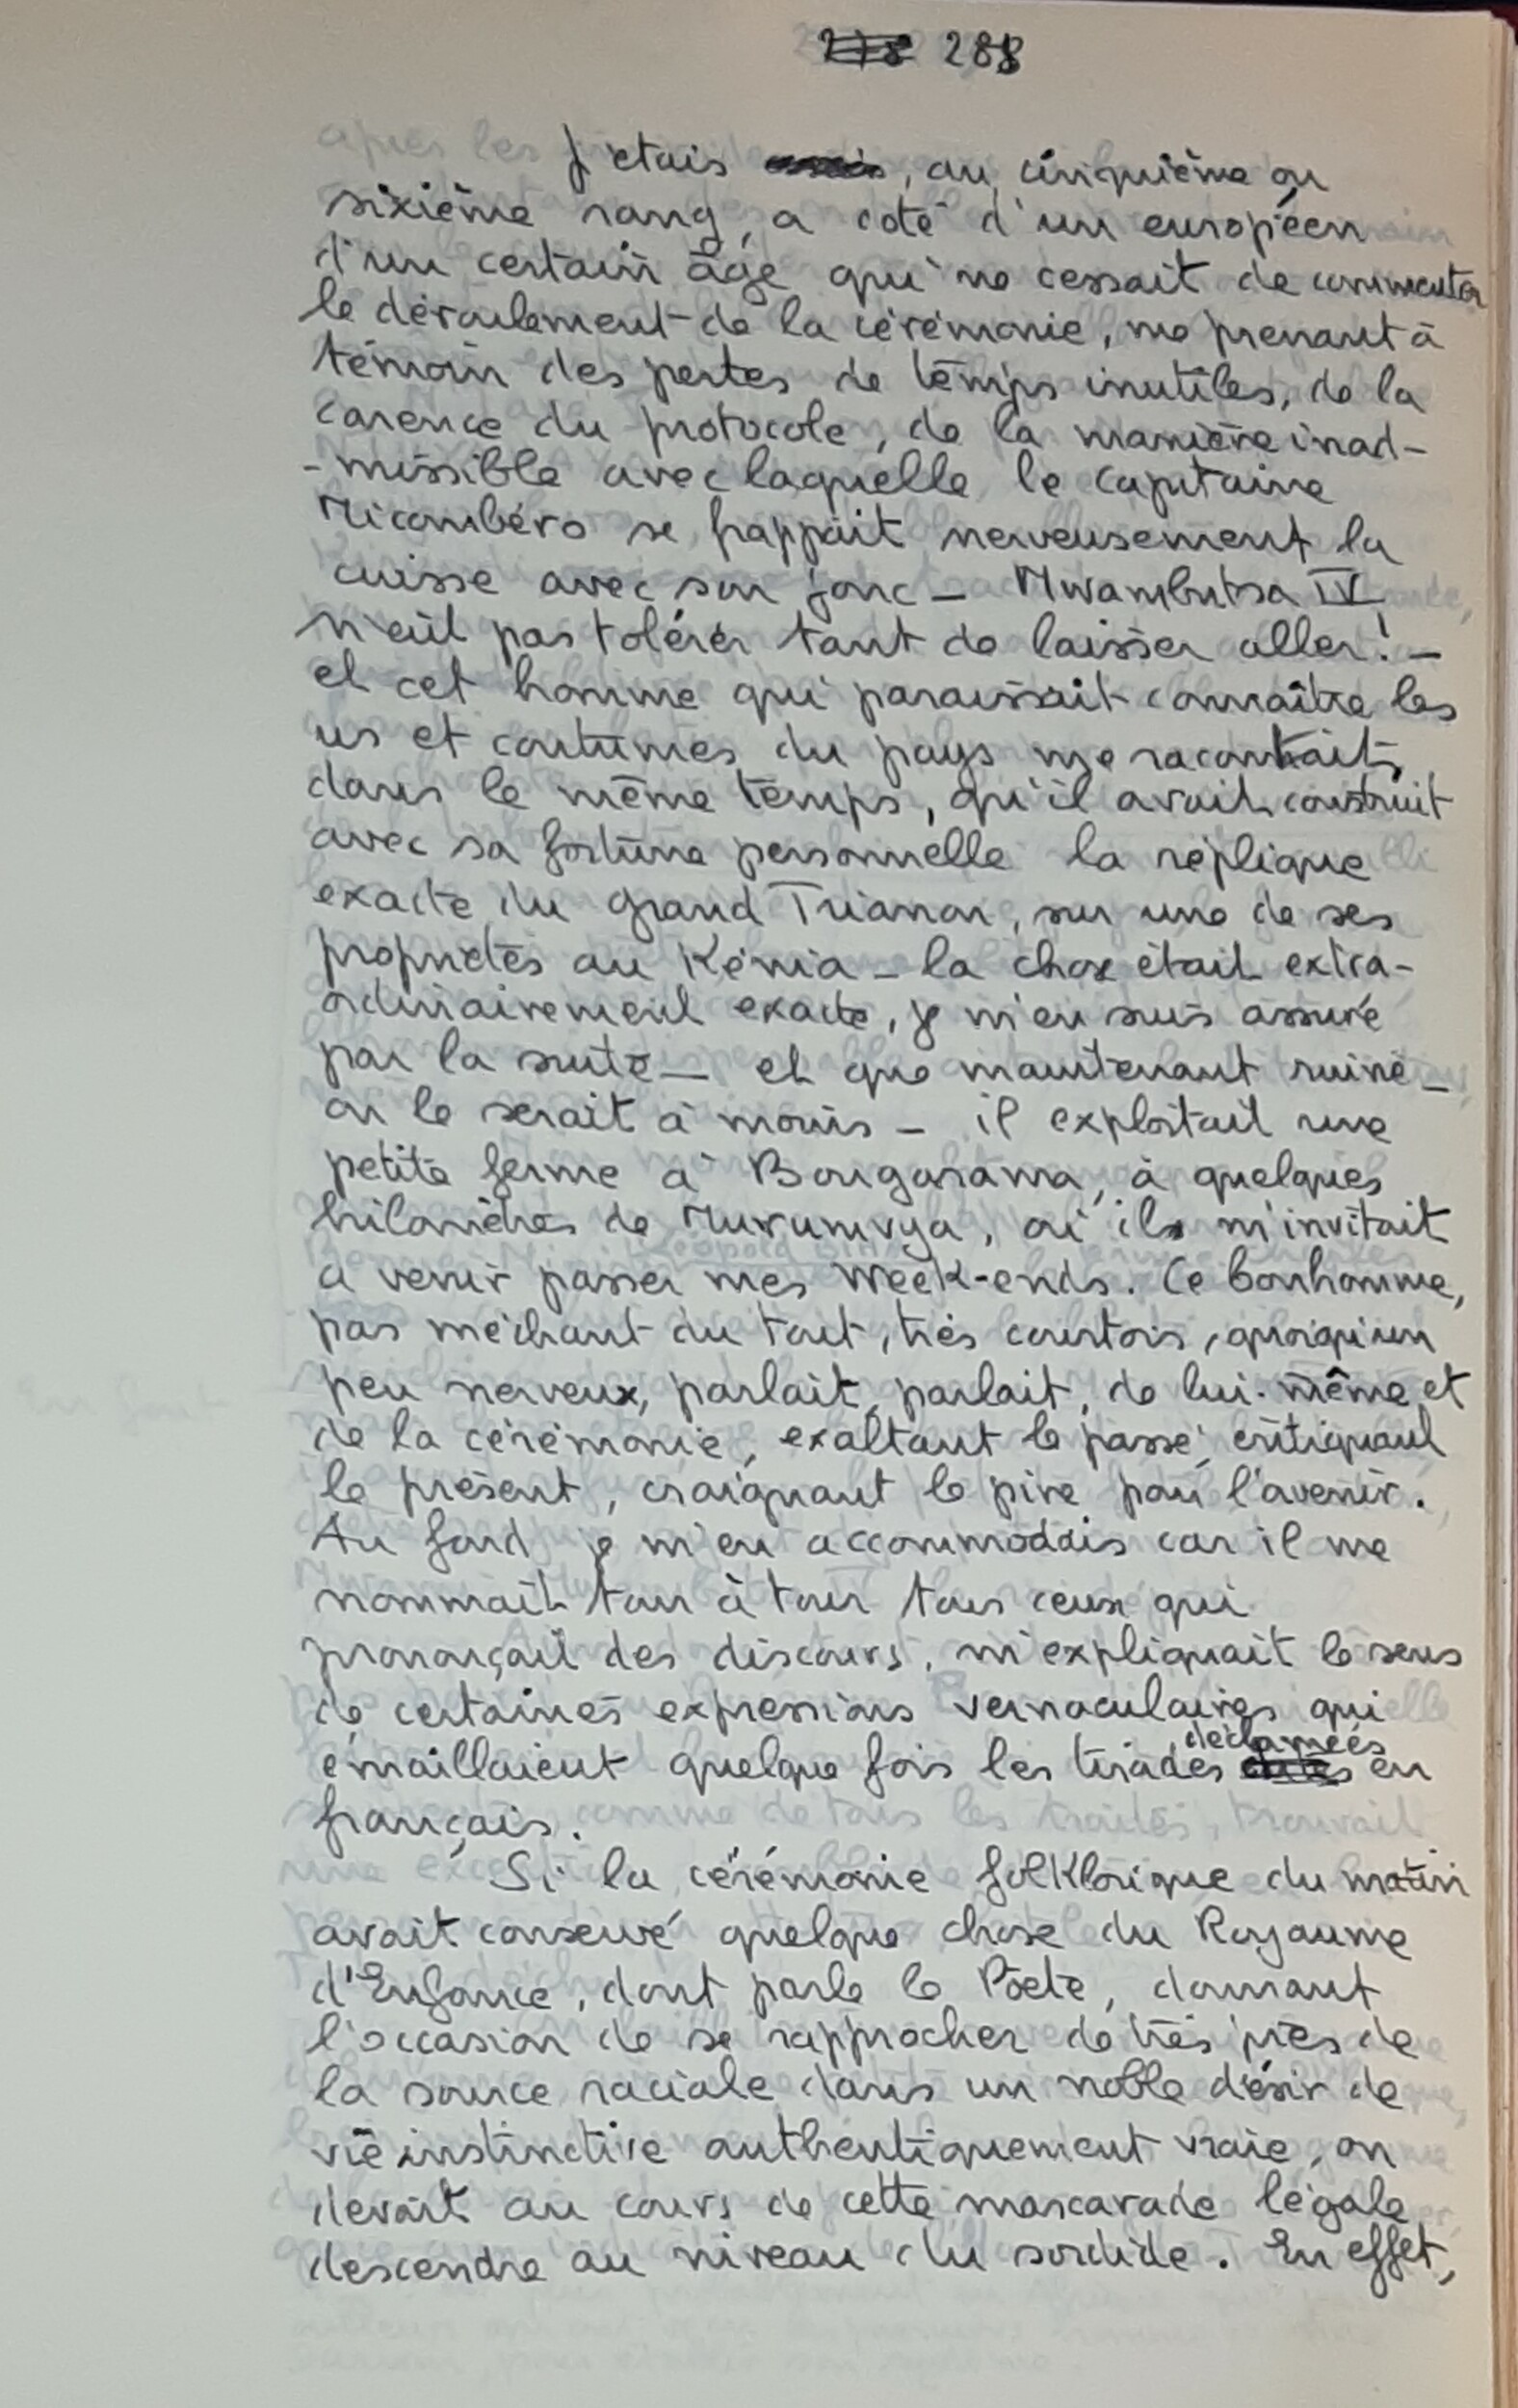 288
J'étais, au cinquième ou
sixième rang, a coté d'un européen
d'un certain âge qui ne cessait de commenter
le déroulement de la cérémonie, me prenant à
témoin des pertes de temps inutiles, de la
carence du protocole, de la manière inad-
-missible avec laquelle le capitaine
Micombéro se frappait nerveusement la
cuisse avec son jonc - Mwambutsa IV
n'eût pas tolérer tant de laisser aller! -
et cet homme qui paraissait connaître les
us et coutumes du pays me racontait,
dans le même temps, qu'il avait construit
avec sa fortune personnelle la réplique
exacte du grand Trianon, sur une de ses
propriétés au Kénia - la chose était extra-
ordinairement exacte, je m'en suis assuré
par la suite - et que maintenant ruiné -
on le serait à moins - il exploitait une
petite ferme à Bougarama, à quelques
kilomètres de Muramvya, où il m'invitait
a venir passer mes week-ends. Ce bonhomme,
pas méchant du tout, très courtois, quoiqu'un
peu nerveux, parlait, parlait, de lui-même et
de la cérémonie, exaltant le passé, critiquant
le présent, craignant le pire pour l'avenir.
Au fond je m'en accommodais car il me
nommait tour à tour tous ceux qui
prononçait des discours, m'expliquait le sens
de certaines expressions vernaculaires qui
émaillaient quelque fois les tirades déclamées en
français.
Si la cérémonie folklorique du matin
avait conservé quelque chose du Royaume
d'Enfance, dont parle le Poète, donnant
l'occasion de se rapprocher de très près de
la source raciale dans un noble désir de
vie instinctive authentiquement vraie, on
devait au cours de cette mascarade légale
descendre au niveau du sordide. En effet,